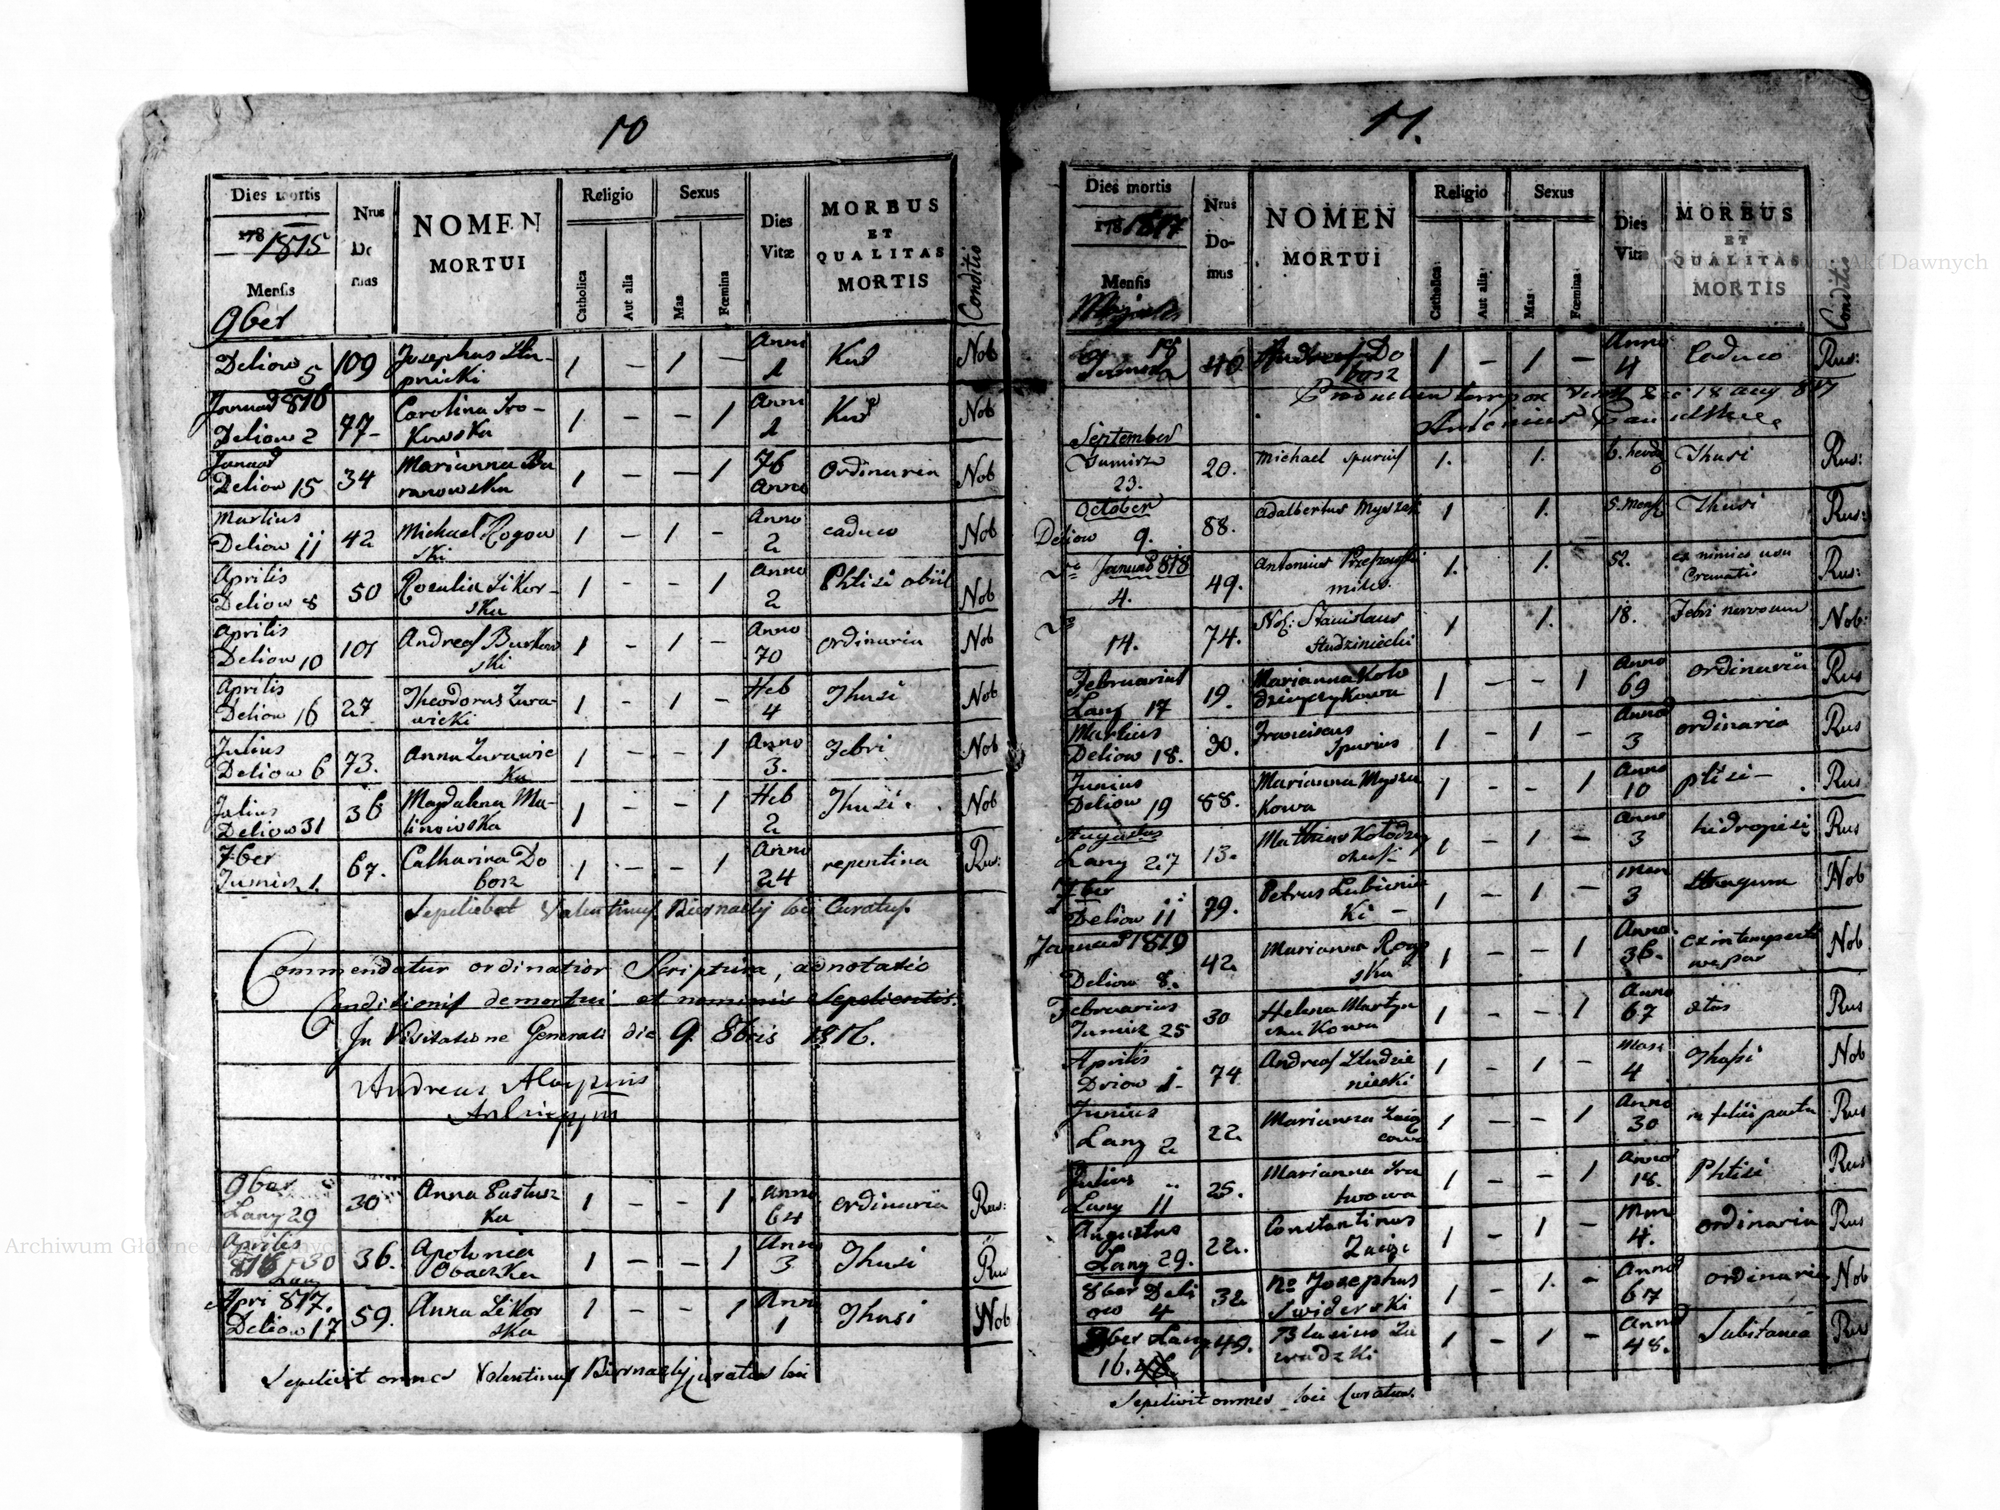 10
Dies mortis
178 1815
Mensis
9ber
Nrus
Do
mus
NOMEN
MORTUI
Religio
Catholica
Aut alia
Sexus
Mas
Fœmina
Dies
Vitæ
MORBUS
ET
QUALITAS
MORTIS
Conditio
Deliow 5 109 Josephus 1 – 1 – Anno 1 Nob
Januar 816
Deliow 2 47 Carolina 1 – – 1 Anno Nob
kowska
Januar
Deliow 15 34 Marianna Ba 1 – – 1 76 Anno Ordinaria Nob
ranowska
Martius
Deliow 11 42 Michael Rogow 1 – 1 – Anno 2 caduco Nob
ski
Aprilis
Deliow 8 50 Rosalia Sikor– 1 – – 1 Anno 2 Phtisi obiit Nob
ska
Aprilis
Deliow 10 101 Andreas 1 – 1 – Anno 70 ordinaria Nob
ski
Aprilis
Deliow 16 27 Theodorus Zura– 1 – 1 – Heb 4 Thusi Nob
wicki
Julius
Deliow 6 73. Anna Zurawic 1 – – 1 Anno 3. Febri Nob
ka
Julius
Deliow 31 36 Magdalena Ma– 1 – – 1 Heb 2 Thusi Nob
linowska
7ber
Tumirz 1 67. Catharina Do 1 – – 1 Anno 24 repentina Rus:
bosz
Sepeliebat Valentinus Biernacky loci Curatus
Commendatur ordinatior Scriptura, adnotatio
Conditionis demortui et nominis Sepelientis.
In Visitatione Generali die 9 8bris 1816.
Andreas
9ber
Lany 29 30 Anna Pastusz 1 – – 1 Anno 64 ordinaria Rus:
ka
Aprilis
816 30 36. Apolonia 1 – – 1 Anno 3 Thusi Rus
Lany
Apri 817.
Deliow 17 59. Anna Sikor 1 – – 1 Anno 1 Thusi Nob
ska
Sepelivit omnes Valentinus Biernacky curatus loci
11.
Dies mortis
178 1817
Mensis
Nrus
Do-
mus
NOMEN
MORTUI
Religio
Catholica
Aut alia
Sexus
Mas
Fœmina
Dies
Vitæ
MORBUS
ET
QUALITAS
MORTIS
Conditio
18 40 Do 1 – 1 – Anno 4 Caduco Rus:
bosz
18 aug 817
Antonius
September
Tumirz 20. Michael spurius 1. 1. 6. Thusi Rus:
23.
October
Deliow 9. 88. Adalbertus 1 1. 5. Mens Thusi Rus:
Januar 818
4. 49. Antonius 1. 1. 52. ex nimico usu Rus:
miles. Cremati
14. 74. Nob: Stanislaus 1 1. 18. Febri nervosum Nob:
Studziniecki
Februarius
Lany 17 19. Marianna Kolo 1 – – 1 Anno 69 ordinaria Rus
Martius
Deliow 18. 90. Franciscus 1 – 1 – Anno 3 ordinaria Rus
Spurius
Junius
Deliow 19 88. Marianna Mysza 1 – – 1 Anno 10 ptisi – Rus
kowa
Augustus
Lany 27 13. Mathias Kolodzey 1 – 1 – Anno 3 hidropisi Rus
7ber
Deliow 11 79. Petrus Lubienie 1 – 1 – Men 3 Nob
ki –
Januar 1819
Deliow 8. 42 Marianna Rogo 1 – – 1 Anno 36. Nob
ska
Februarius
Tumirz 25 30 Helena Martyn 1 – – 1 Anno 67 Rus
Aprilis
1. 74 Andreas Studzie 1 – 1 – Men 4 Nob
niecki
Junius
Lany 2 22 Marianna 1 – – 1 Anno 30 Rus
Julius
Lany 11 25. Marianna 1 – – 1 Anno 18. Phtisi Rus
Augustus
Lany 29. 22. Constantinus 1 – 1 Men 4. ordinaria Rus
8ber Deli
ow 4 32 No Josephus 1 – 1. – Anno 67 ordinaria Nob
Swiderski
Lany 49. Blasius Za 1 – 1 – Anno 48. Rus
16. wadzki
Sepelivit omnes loci Curatus.
Archiwum Główne Akt Dawnych
Archiwum Główne Akt Dawnych